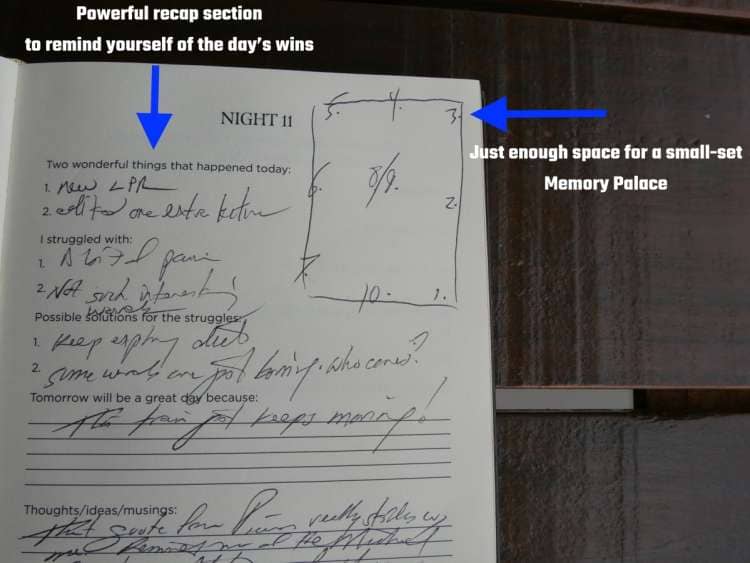 Powerful recap section
to remind yourself of the day's wins
NIGHT 11
5. 4. 3.
6. 8/9. 2.
7. 10. 1.
Just enough space for a small-set
Memory Palace
Two wonderful things that happened today:
1. new LPR
2. edited one extra lecture
I struggled with:
1. A bit of pain
2. Not such interesting
words
Possible solutions for the struggles:
1. Keep diets
2. some words are just boring. who cares?
Tomorrow will be a great day because:
The train just keeps moving!
Thoughts/ideas/musings:
That quote from really sticks w
me. Reminds me of the